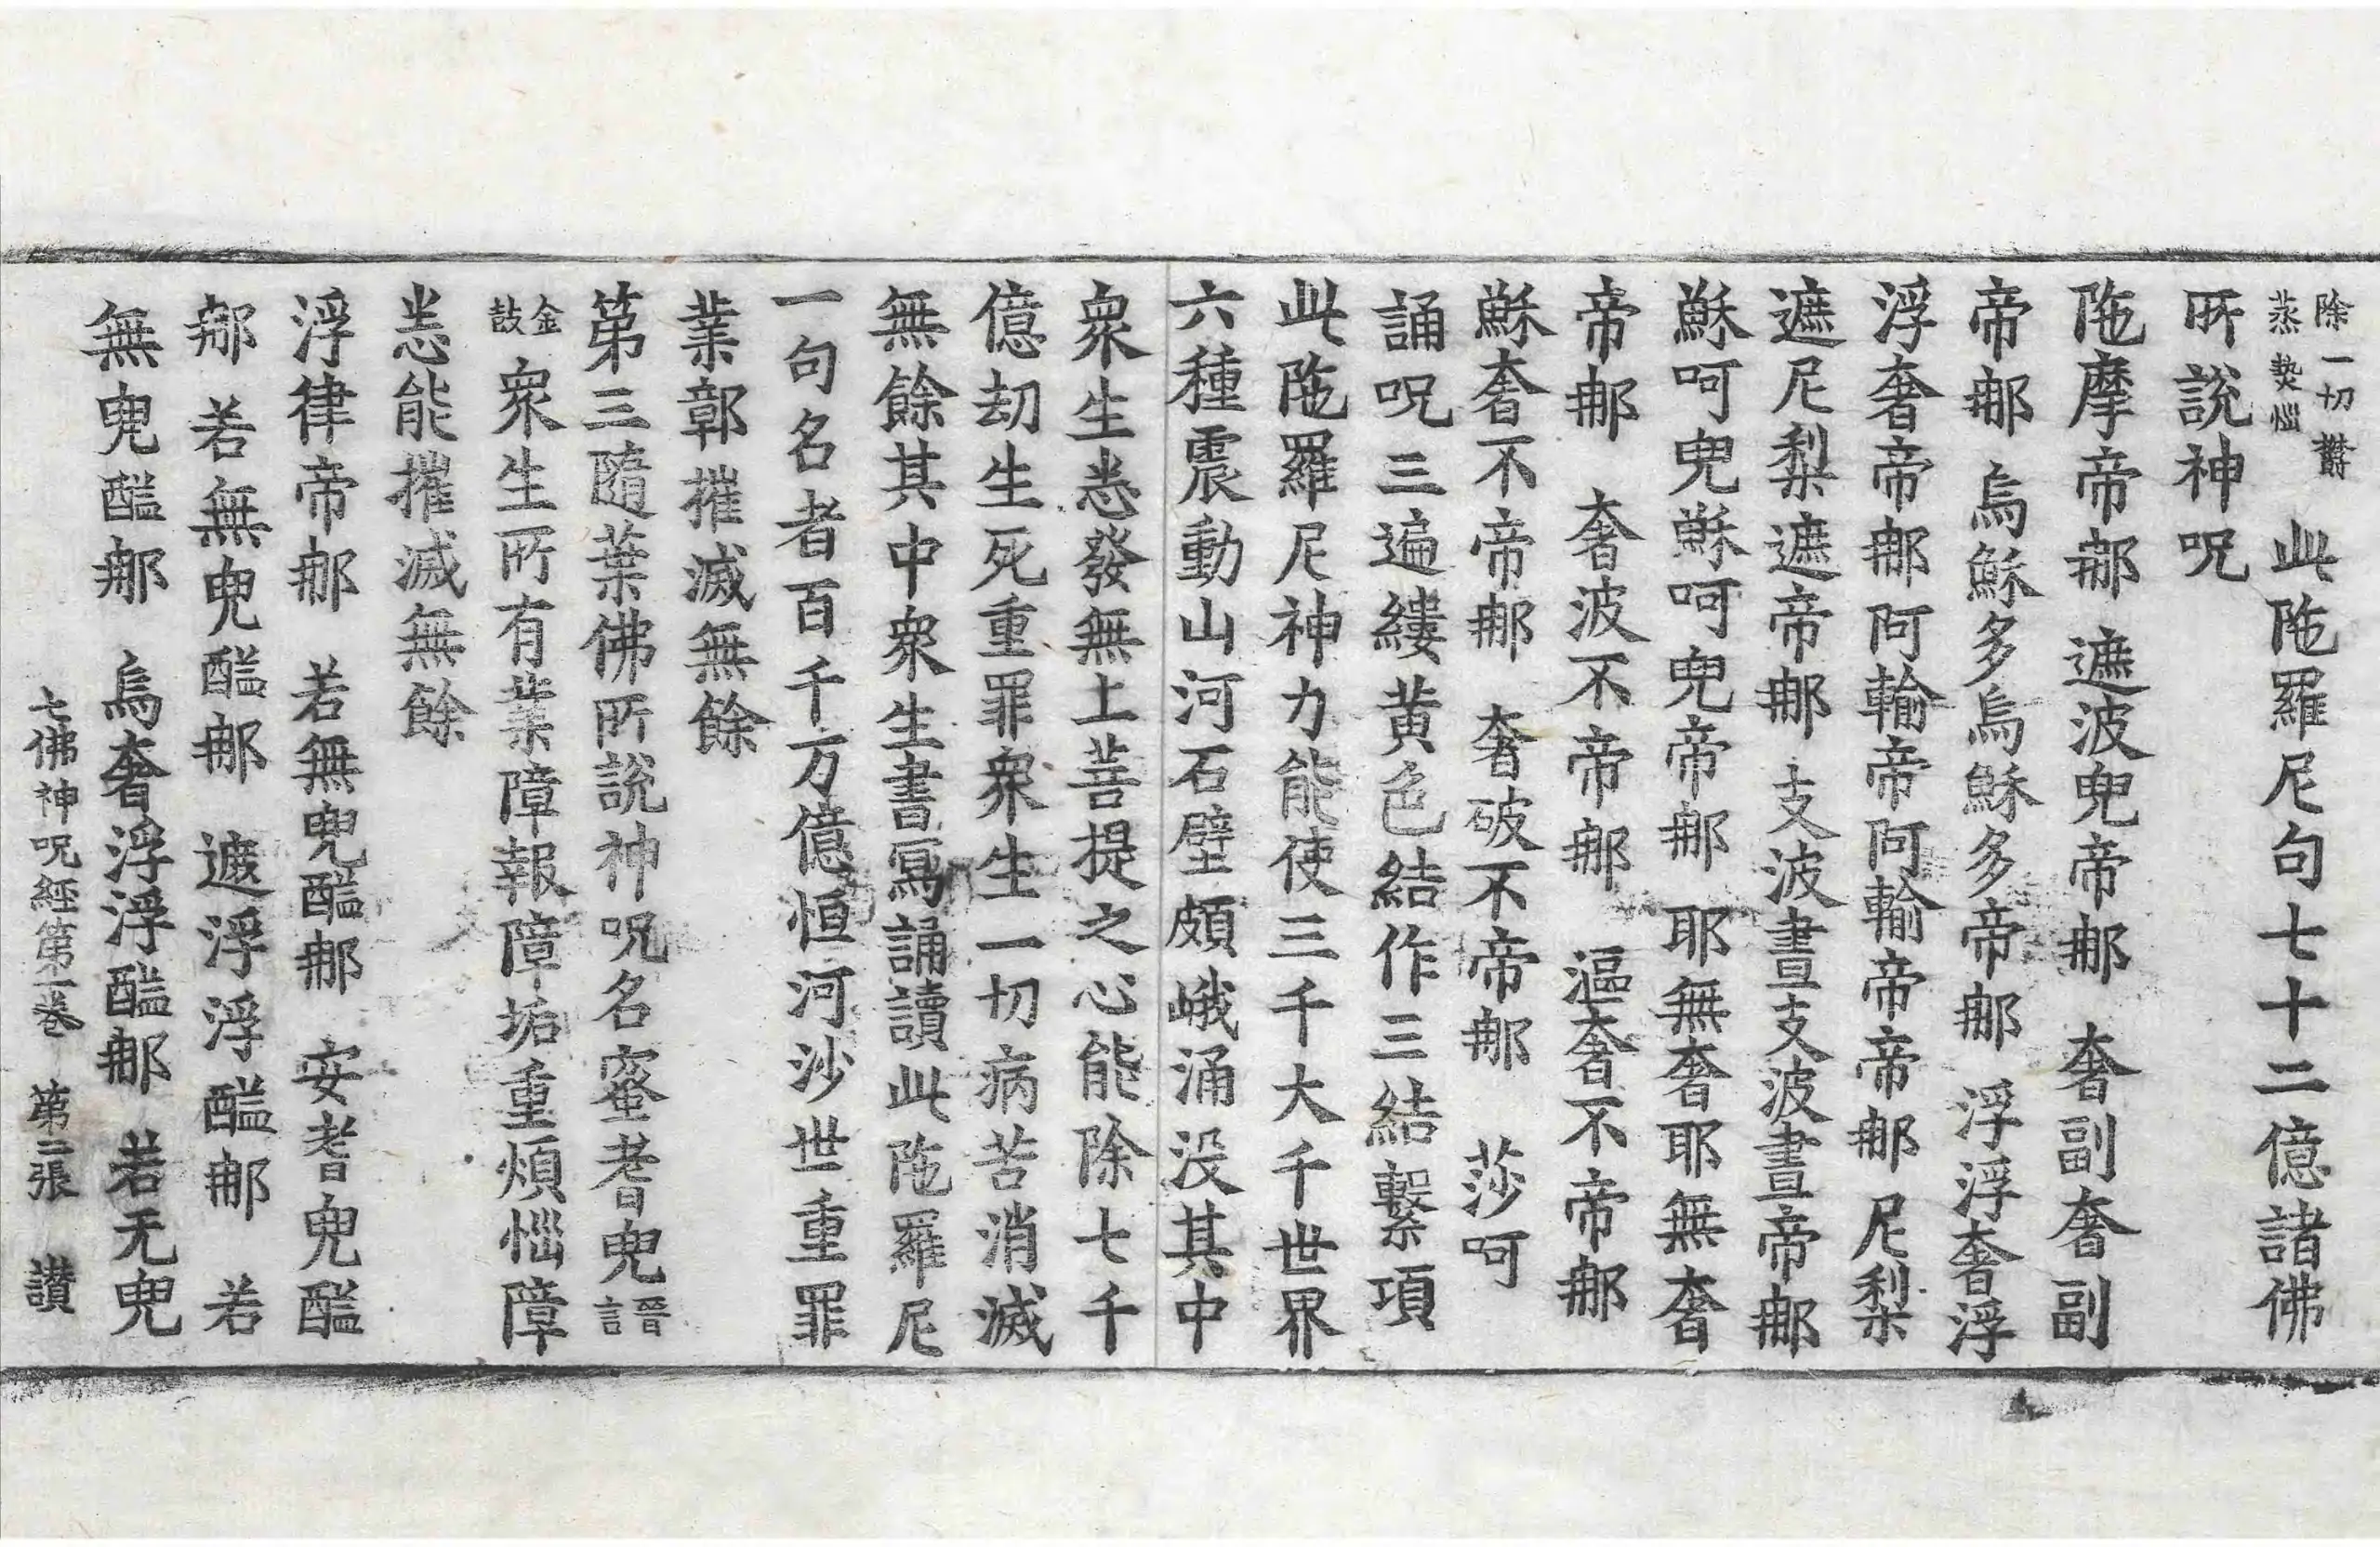 除一切欝蒸熱惱此陁羅尼句七十二億諸佛
所說神呪
陁摩帝那 遮波兜帝那 奢副奢副
帝那 烏穌多烏穌多帝那 浮浮奢浮
浮奢帝那阿輸帝阿輸帝帝那尼梨
遮尼梨遮帝那支波晝支波晝帝那
穌呵兜穌呵兜帝那 耶無奢耶無奢
帝那 奢波不帝那 漚奢不帝那
穌奢不帝那 奢破不帝那 莎呵
誦呪三遍縷黄色結作三結繫項
此陁羅尼神力能使三千大千世界
六種震動山河石壁頗峨涌没其中
衆生悉發無上菩提之心能除七千
億劫生死重罪衆生一切病苦消滅
無餘其中衆生書寫誦讀此陁羅尼
一句名者百千万億恒河沙世重罪
業鄣摧滅無餘
第三隨葉佛所說神呪名蜜耆兜晉言
金鼓衆生所有業障報障垢重煩惱障
悉能摧滅無餘
浮律帝那 若無兜醯那 安耆兜醯
那 若無兜醯那 遮浮浮醯那 若
無兜醯那 烏奢浮浮醯那 若无兜
七佛神呪經第一卷 第二張 讃